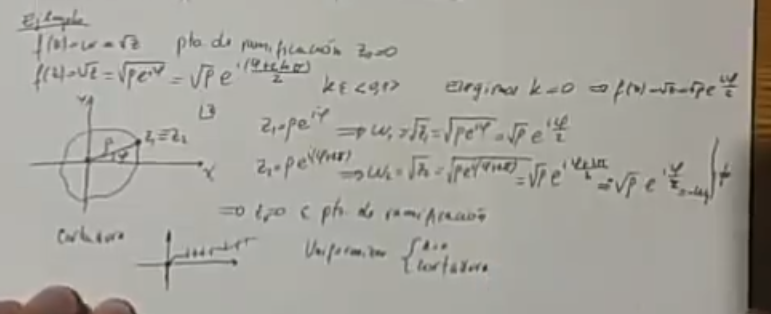 Ejemplo
f(z)=w=√z pto. de ramificación z₀=0
f(z)=√z=√(ρe^{iφ})=√ρ e^{i(φ+2kπ)/2} k∈<0,1> Elegimos k=0 ⇒ f(z)=√z=√ρ e^{iφ/2}
y ρ φ z₁≡z₂ x
z₁=ρe^{iφ} ⇒ w₁=√z₁=√(ρe^{iφ})=√ρ e^{iφ/2}
z₂=ρe^{i(φ+2π)} ⇒ w₂=√z₂=√(ρe^{i(φ+2π)})=√ρ e^{i(φ+2π)/2}=-√ρ e^{iφ/2}=-w₁ ≠
⇒ z₀=0 pto. de ramificación
Cortadura
Uniformizar { k=0
Cortadura